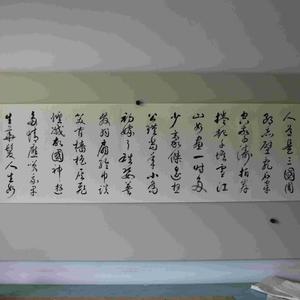 人道是三國周
郎赤壁亂石
空驚濤拍岸
捲起千堆雪江
山如畫一時多
少豪傑遙想
公瑾當年小喬
初嫁了雄姿英
發羽扇綸巾談
笑間檣櫓灰飛
煙滅故國神遊
多情應笑我早
生華髮人生如